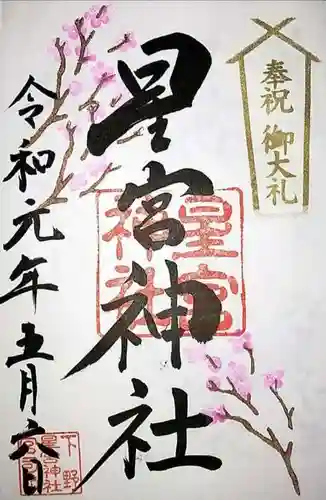 奉祝 御大礼
星宮神社
令和元年五月六日
星宮
神社
下野
星宮神社